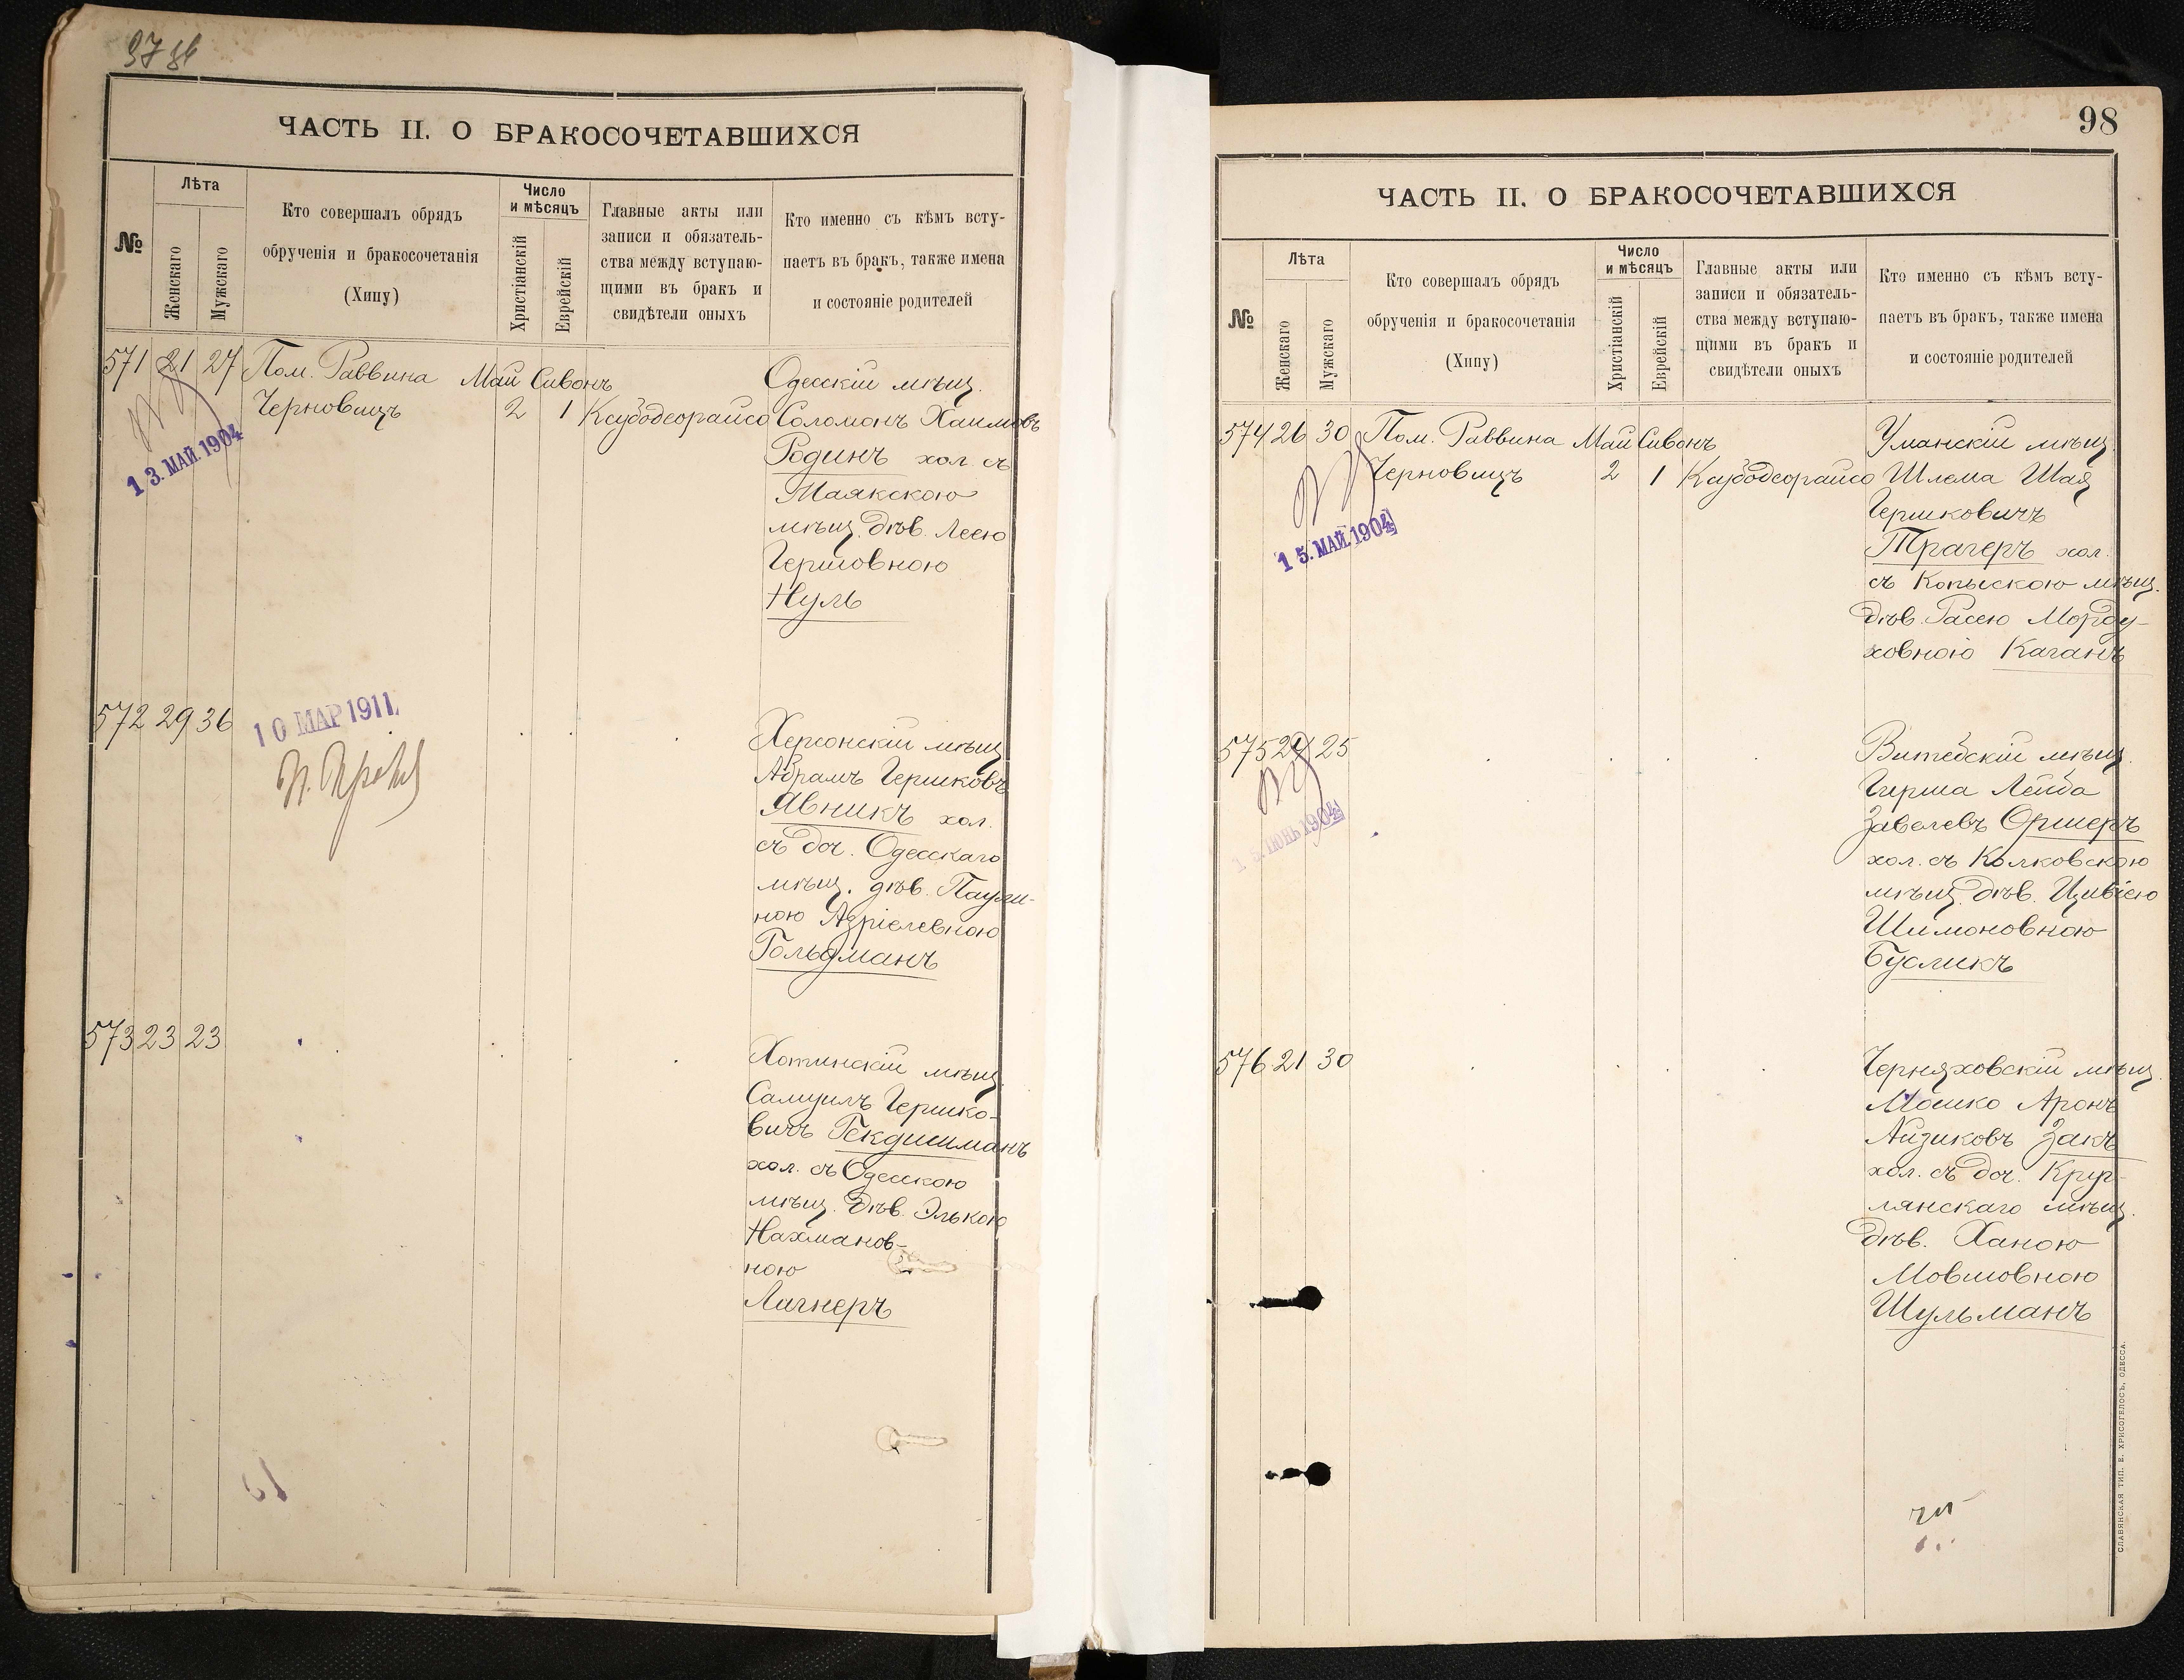 ЧАСТЬ II. О БРАКОСОЧЕТАВШИХСЯ
№
Лѣта
Женскаго
Мужскаго
Кто совершалъ обрядъ
обрученія и бракосочетанія
(Хипу)
Число
и мѣсяцъ
Христіанскій
Еврейскій
Главные акты или
записи и обязатель-
ства между вступаю-
щими въ бракъ и
свидѣтели оныхъ
Кто именно съ кѣмъ всту-
паетъ въ бракъ, также имена
и состояніе родителей
571 21 27 Пом. Раввина Май Сивонъ Одесскій мѣщ.
Черновицъ 2 1 Ксубодеорайсо Соломонъ Хаимовъ
13. МАЙ. 1904
Родинъ хол. съ
Маякскою
мѣщ. дѣв. Леею
Гершовною
Нуль
572 29 36
10 МАР 1911
Херсонскій мѣщ.
Абрамъ Гершковъ
Явникъ хол.
съ доч. Одесскаго
мѣщ. дѣв. Паули-
ною Азріелевною
Гольдманъ
573 23 23
Хотинскій мѣщ.
Самуилъ Гершко-
вичъ Гекдишманъ
хол. съ Одесскою
мѣщ. дѣв. Элькою
Нахманов-
ною
Лагнеръ
98
ЧАСТЬ II. О БРАКОСОЧЕТАВШИХСЯ
№
Лѣта
Женскаго
Мужскаго
Кто совершалъ обрядъ
обрученія и бракосочетанія
(Хипу)
Число
и мѣсяцъ
Христіанскій
Еврейскій
Главные акты или
записи и обязатель-
ства между вступаю-
щими въ бракъ и
свидѣтели оныхъ
Кто именно съ кѣмъ всту-
паетъ въ бракъ, также имена
и состояніе родителей
574 26 30 Пом. Раввина Май Сивонъ Уманскій мѣщ.
Черновицъ 2 1 Ксубодеорайсо Шлема Шая
15. МАЙ. 1904
Гершковичъ
Трагеръ хол.
съ Копыскою мѣщ.
дѣв. Расею Морду-
ховною Каганъ
575 24 25
ІЮНЬ 1904
Витебскій мѣщ.
Гирша Лейба
Завелевъ Оршеръ
хол. съ Колковскою
мѣщ. дѣв. Цивіею
Шимоновною
Бусликъ
576 21 30
Черняховскій мѣщ.
Мошко Аронъ
Айзиковъ Закъ
хол. съ доч. Круг-
лянскаго мѣщ.
дѣв. Ханою
Мовшовною
Шульманъ
СЛАВЯНСКАЯ ТИП. Е. ХРИСОГЕЛОСЪ, ОДЕССА.